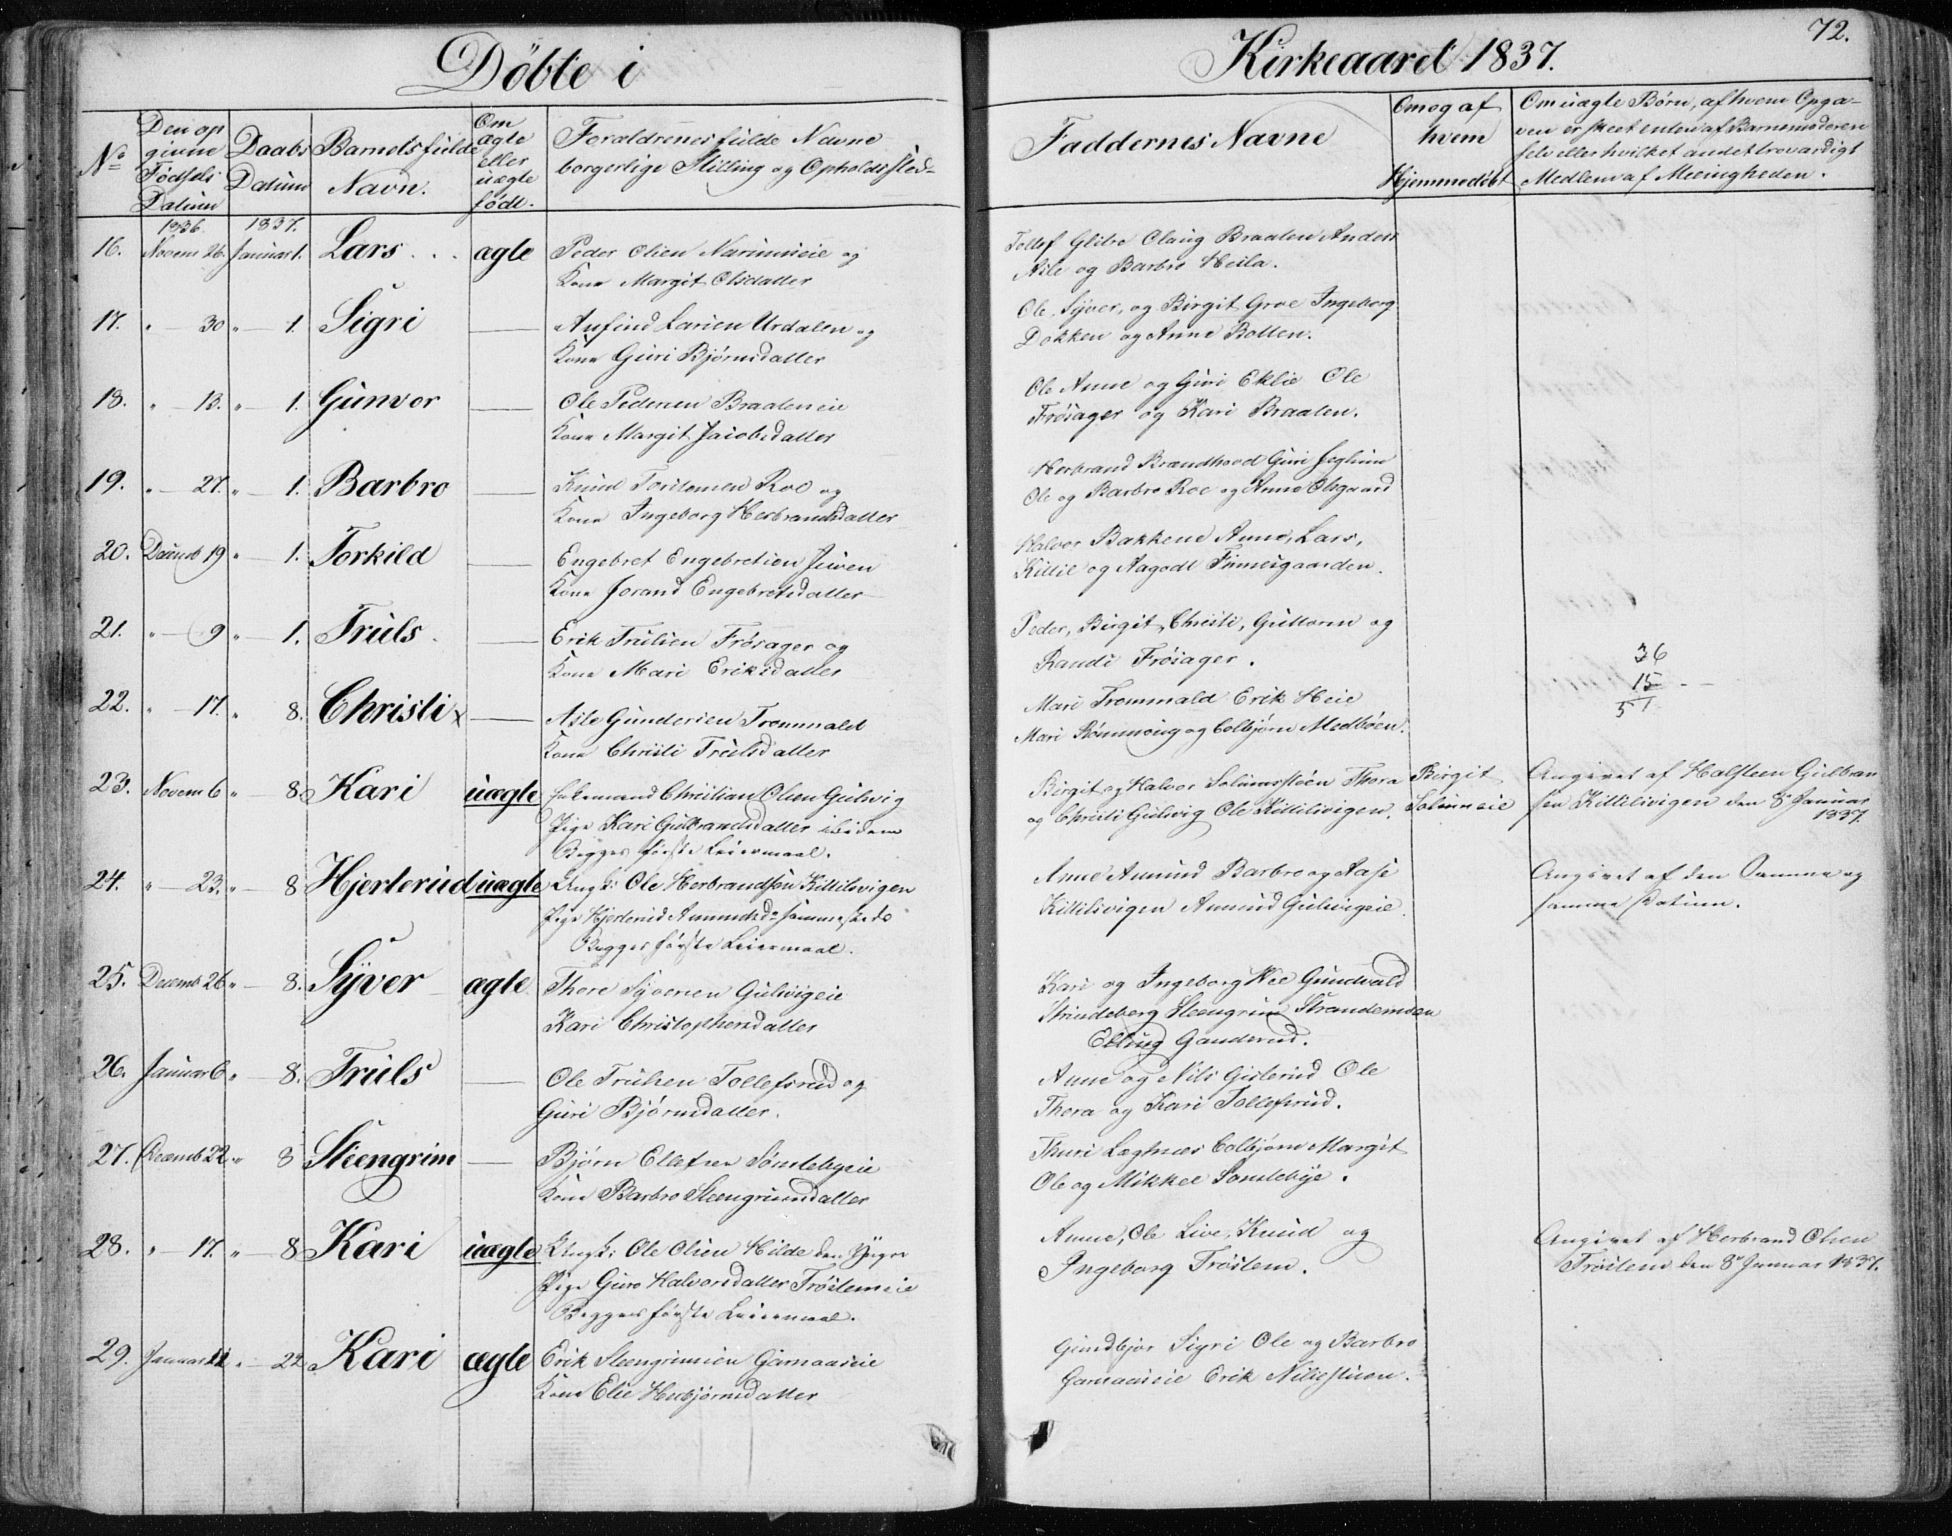 Döbte i
Kirkeaaret 1837.
72.
No
Den op
givne
Födsels
Datum
Daabs
Datum
Barnets fulde
Navn.
Om
ægte
eller
uægte
født.
Forældrenes fulde Navne
borgerlige Stilling og Opholdssted
Faddernes Navne
Om og af
hvem
Hjemmedöbt
Om uægte Børn, af hvem Opga-
ven er skeet enten af Barnemoderen
selv eller hvilket andet troværdigt
Medlem af Menigheden.
1836. 1837.
16. Novem 26. Januar 1. Lars ægte Peder Olsen
Kone Margit Olsdatter
Tollef Glitre Olaug Braaten Anders
Asle og Barbro Heila.
17. " 30 " 1. Sigri Anfind Larsen Urdalen og
Kone Guri Björnsdatter
Ole, Syver, og Birgit Groe Ingeborg
Dokken og Anne Bollen.
18. " 13. " 1. Gunvor Ole Pedersen Braateneie
Kone Margit Jacobsdatter
Ole Anne og Guri Eklie Ole
Frösager og Kari Braaten.
19. " 27. " 1. Barbro Knud Torstensen Roe og
Kone Ingeborg Herbrandsdatter
Herbrand Brændhoed Guri
Ole og Barbro Roe og Anne Olsgaard
20. Decemb 19 " 1. Torkild Engebret Engebretsen
Kone Jorand Engebretsdatter
Halvor Bakkene Anne, Lars,
Kittil og Aagodt Finnesgaarden.
21. " 9 " 1. Truls Erik Trulsen Frösager og
Kone Mari Eriksdatter
Peder, Birgit, Christi, Guttorm og
Randi Frösager.
36
15
51
22. " 17. " 8. Christi x Asle Gundersen Trommald
Kone Christi Trulsdatter
Mari Trommald Erik Heie
Mari og Colbjörn Medböen.
23. Novem 6 " 8. Kari uægte Christian Olsen Gulsvig
Pige Kari Gulbrandsdatter ibidem
Begges første Leiermaal.
Birgit og Halvor Thora
og Christi Gulsvig Ole Kittilsvigen.
Birgit
Angivet af Halsteen Gulbran
sen Kittilsvigen den 8de Januar
1837.
24. " 23. " 8 Hjerterud uægte Ungk: Ole Herbrandsen Kittilsvigen
Pige Hjerterud Amundsd. sammesteds
Begges første Leiermaal.
Anne Amund Barbro og Aase
Kittilsvigen Amund Gulsvigeie
Angivet af den Samme og
samme Datum.
25. Decemb 26 " 8. Syver ægte Thore Syversen Gulsvigeie
Kari Christophersdatter
Kari og Ingeborg Gundvald
Strindeberg Steengrim
Elling Ganderud.
26. Januar 6 " 8. Truls Ole Trulsen Tollefsrud og
Guri Björnsdatter.
Anne og Nils Gislerud Ole
Thora og Kari Tollefsrud.
27. Decemb 22 " 8 Steengrim Björn Ellefsen Sönstebyeie
Kone Barbro Steengrimsdatter
Thuri Colbjörn Margit
Ole og Mikkel Sönstebye.
28. " 17. " 8 Kari uægte Ungk: Ole Olsen Hilde den Yngre
Pige Guro Halvorsdatter Fröstemeie
Begges første Leiermaal.
Anne, Ole Live, Knud og
Ingeborg Frösteim.
Angivet af Herbrand Olsen
Frösteim den 8de Januar 1837.
29. Januar 22 Kari ægte Erik Steengrimsen Garnaaseie
Kone Elie Herbjörnsdatter
Gundbjor Sigri Ole og Barbro
Garnaaseie Erik